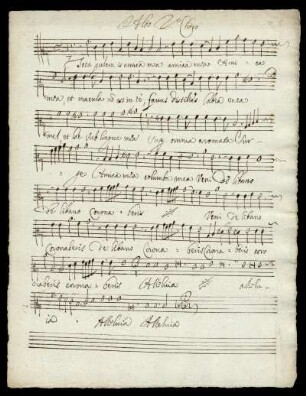 Alto 2.º Choro
Tota pulcra es amica mea amica mea
mea et macula no est in te favus distillans labia
mel et lac sub lingua tua omnia aromata Sur-
ge Amica mea columba mea Veni de libano
de libano corona beris Veni de libano
Coronaberis de libano Corona beris
naberis corona beris Alleluia allelu
ia Alleluia Alleluia